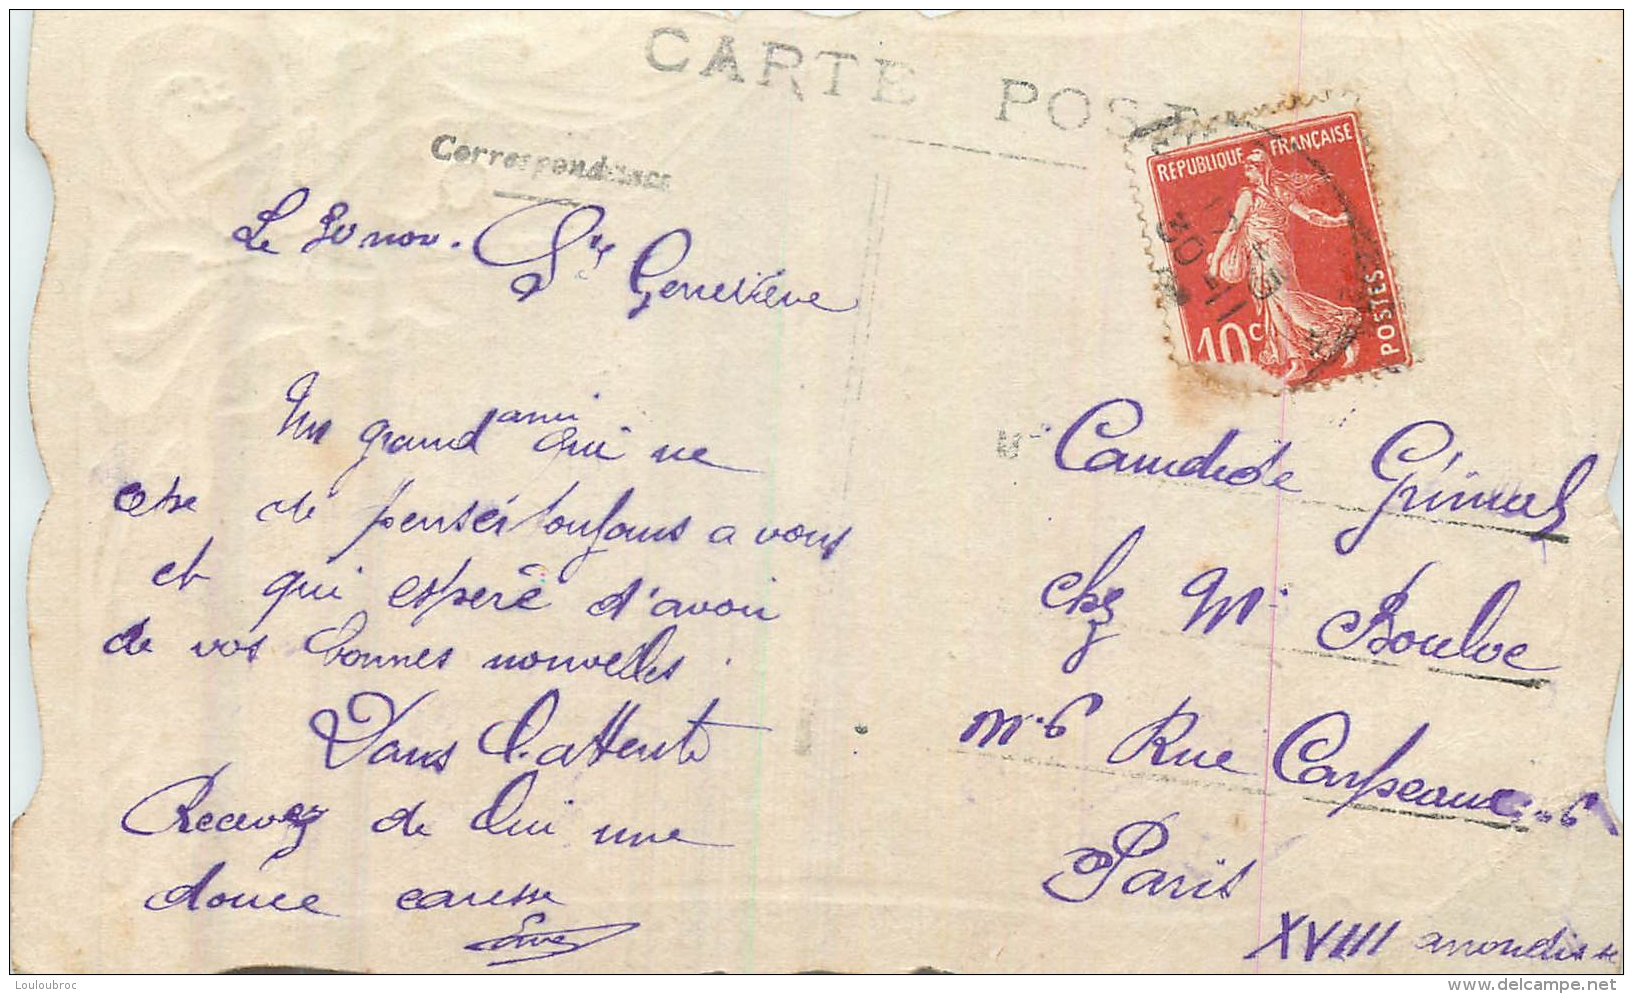 CARTE POST
Correspondance
Le 30 nov. Ste Geneviève
Un grand ami qui ne
de penser toujours a vous
et qui espère d'avoir
de vos bonnes nouvelles.
Dans l'attente
Recevez de lui une
douce caresse
RÉPUBLIQUE FRANÇAISE
POSTES
10c
30
11
M. Candide Grimal
chez Mr Boulve
No. 6 Rue Carpeaux . 6
Paris
XVIII arrondisse
Louloubroc
delcampe.net